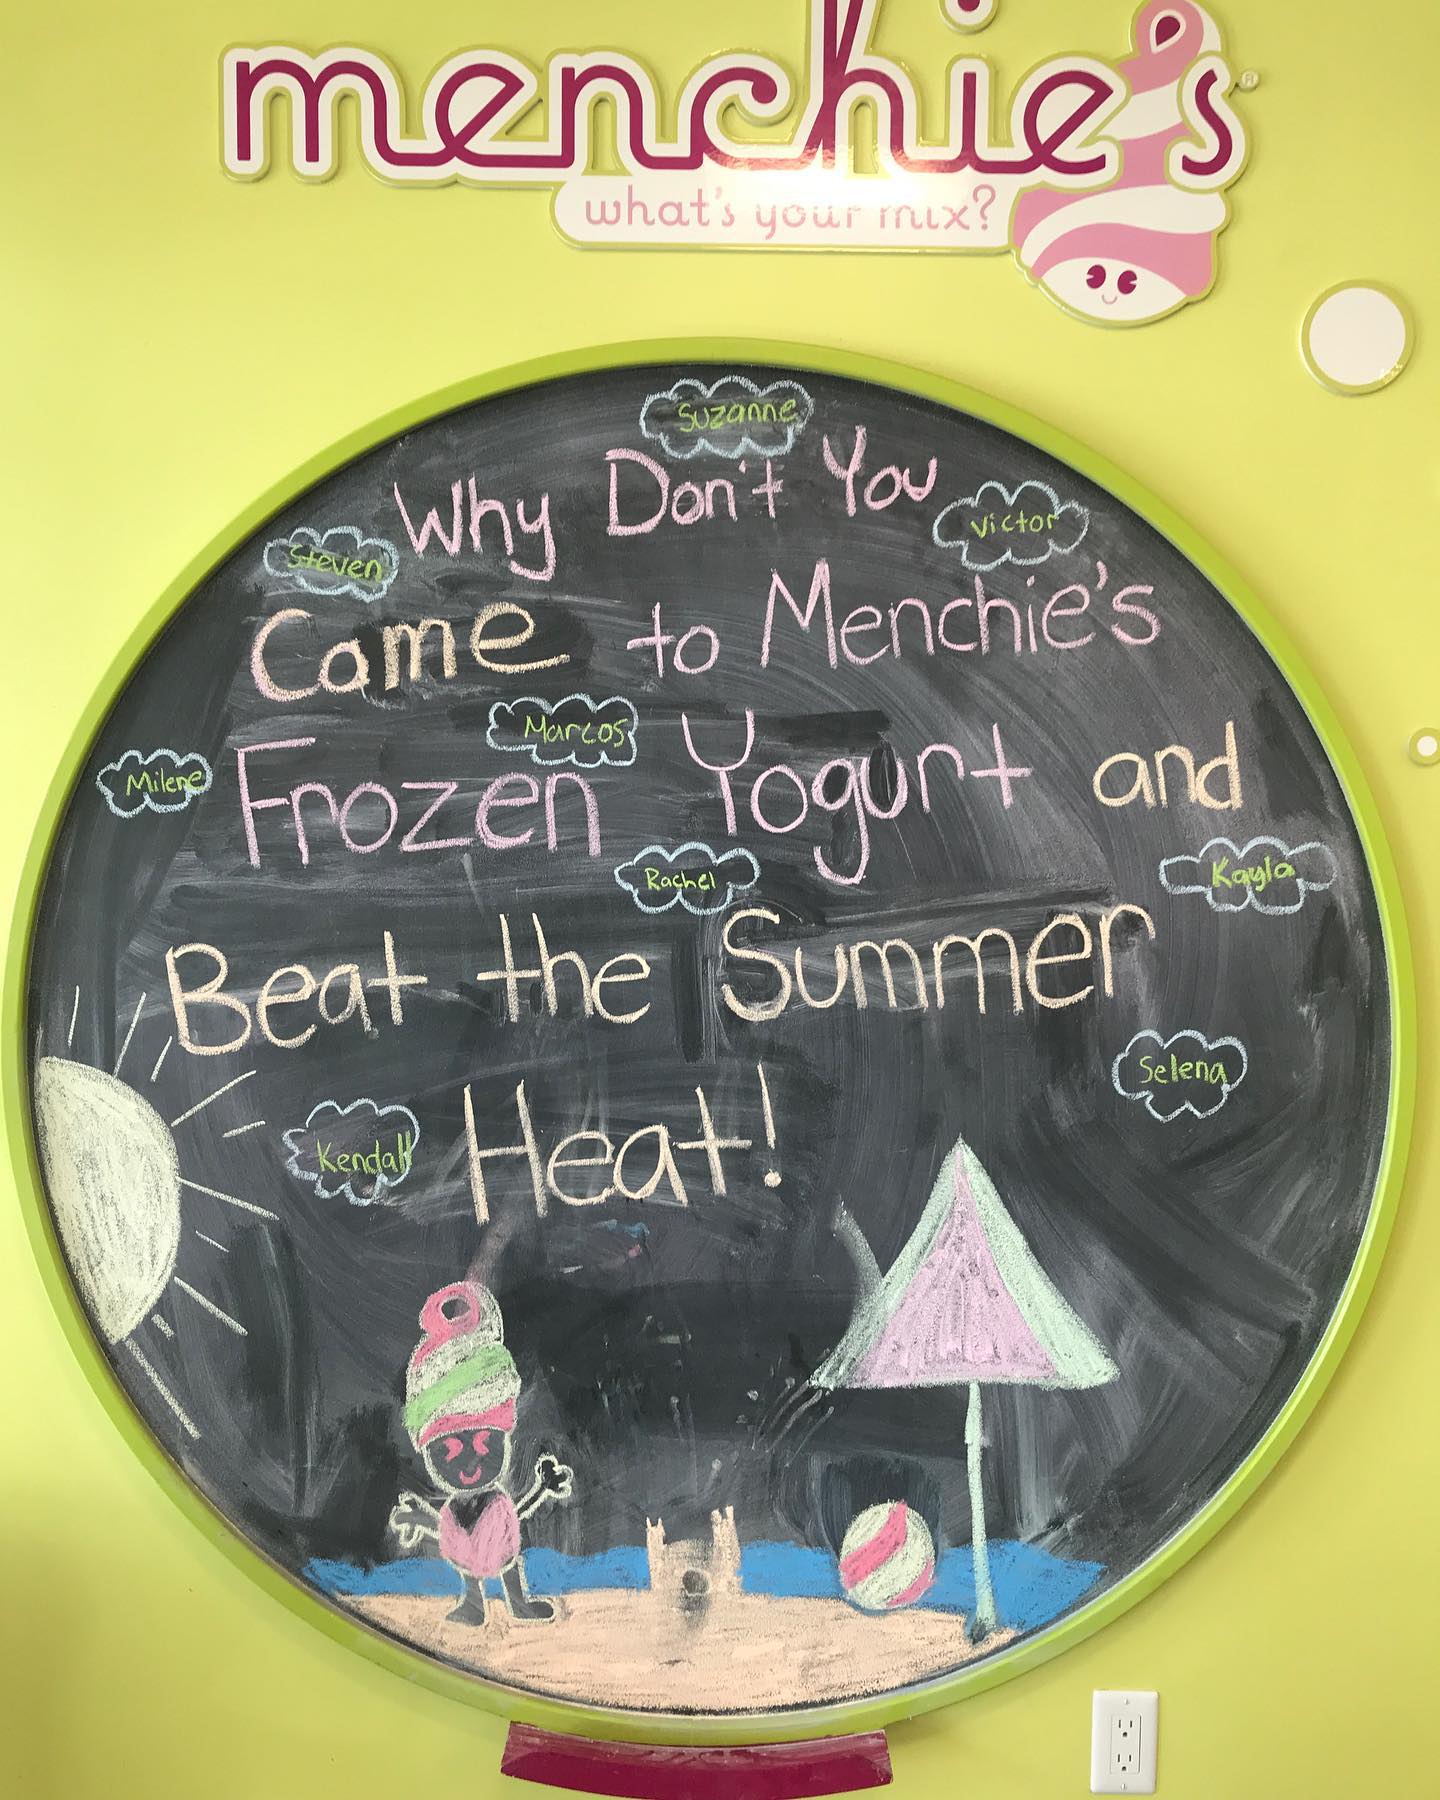 menchie's®
what's your mix?
Suzanne
Why Don't You
Victor
Steven
Come to Menchie's
Marcos
Milene
Frozen Yogurt and
Rachel
Kayla
Beat the Summer
Selena
Kendall
Heat!